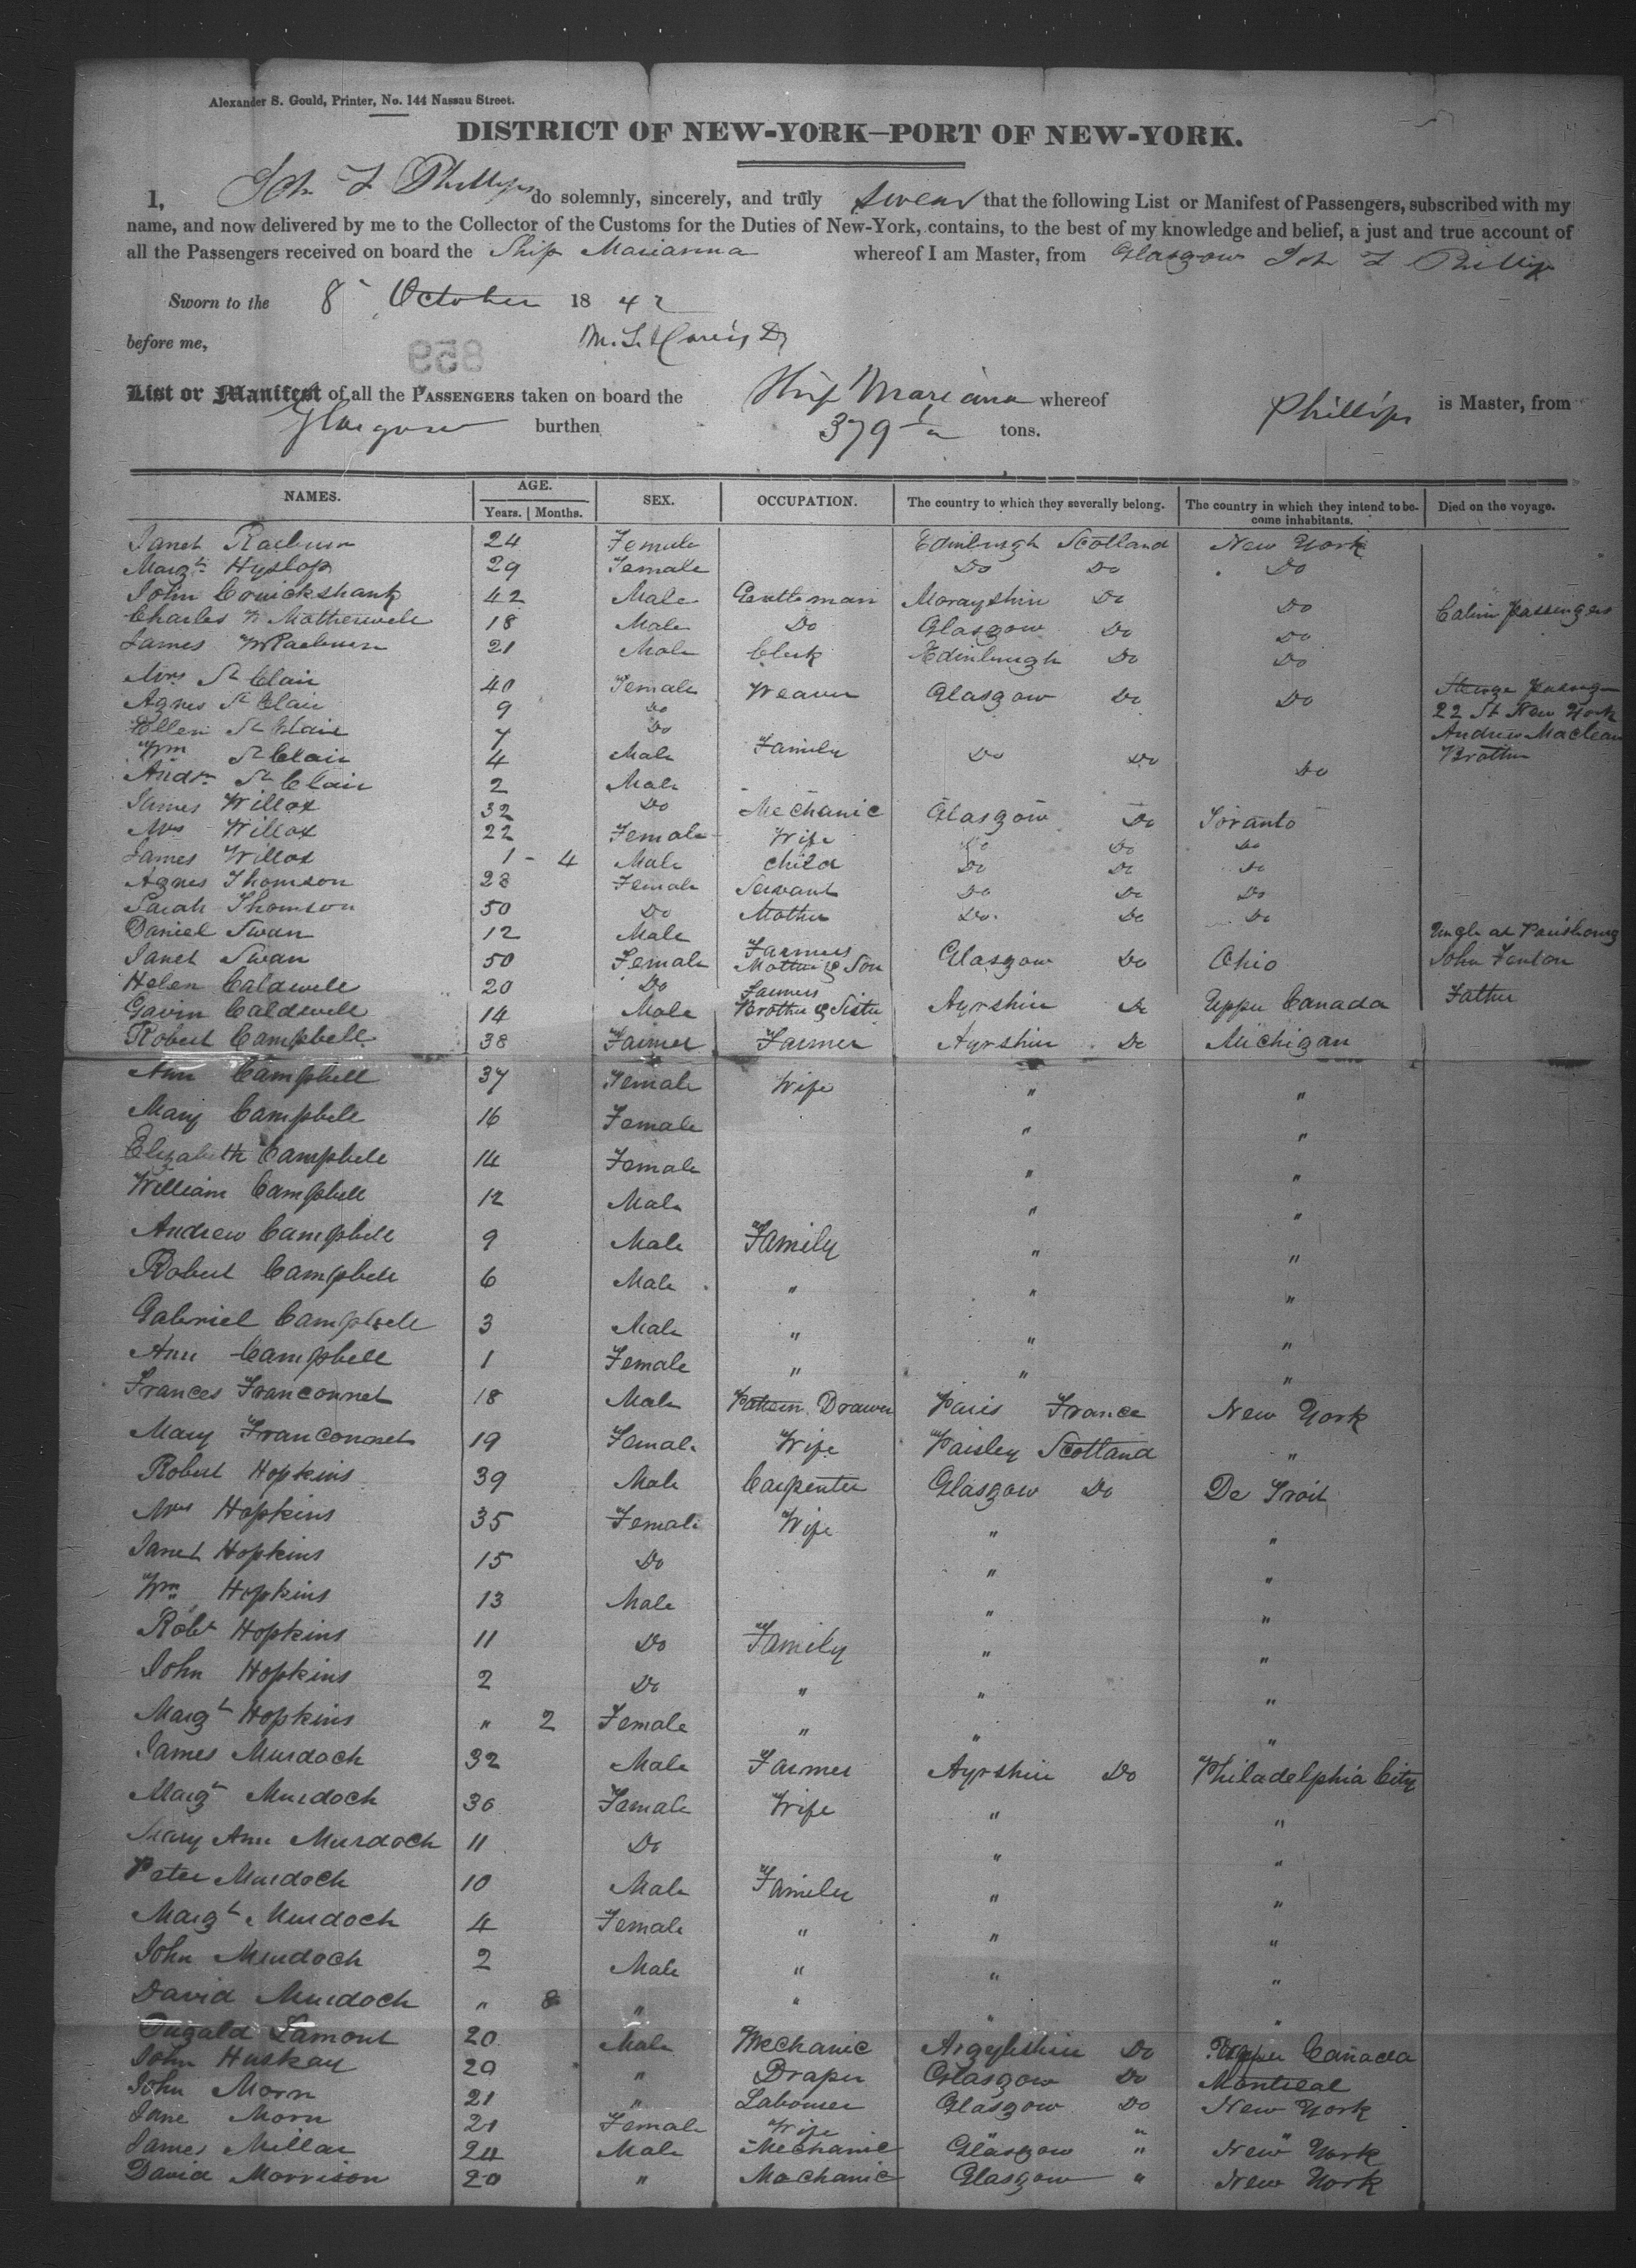 Alexander S. Gould, Printer, No. 144 Nassau Street.
DISTRICT OF NEW-YORK—PORT OF NEW-YORK.
I, Joh L Phillips do solemnly, sincerely, and truly swear that the following List or Manifest of Passengers, subscribed with my
name, and now delivered by me to the Collector of the Customs for the Duties of New-York, contains, to the best of my knowledge and belief, a just and true account of
all the Passengers received on board the Ship Marianna whereof I am Master, from Glasgow Joh L Phillips
Sworn to the 8 October 1842
before me,
859
List or Manifest of all the PASSENGERS taken on board the Ship Mariana whereof Phillips is Master, from
Glasgow burthen 379 tons.
NAMES. AGE. SEX. OCCUPATION. The country to which they severally belong. The country in which they intend to become inhabitants. Died on the voyage.
Years. Months.
Janet Raeburn 24 Female Edinburgh Scotland New York
Margt Hyslop 29 Female Do Do Do
John Cruickshank 42 Male Gentleman Morayshire Do Do Cabin Passengers
Charles Motherwell 18 Male Do Glasgow Do Do
James Raeburn 21 Male Clerk Edinburgh Do Do
Mrs St Clair 40 Female Weaver Glasgow Do Do
Agnes St Clair 9 Do 22 St New York
Ellen St Clair 7 Do Andrew Maclean
Wm St Clair 4 Male Family Do Do Do Brother
Andw St Clair 2 Male
James Willox 32 Do Mechanic Glasgow Do Toranto
Mrs Willox 22 Female Wife Do Do Do
James Willox 1 - 4 Male child Do Do Do
Agnes Thomson 28 Female Servant Do Do Do
Sarah Thomson 50 Do Mother Do Do Do
Daniel Swan 12 Male Farmers
Janet Swan 50 Female Mother & Son Glasgow Do Ohio John Fenton
Helen Caldwell 20 Do Farmers Father
Gavin Caldwell 14 Male Brother & Sister Ayrshire Do Upper Canada
Robert Campbell 38 Farmer Farmer Ayrshire Do Michigan
Ann Campbell 37 Female Wife " "
Mary Campbell 16 Female " "
Elizabeth Campbell 14 Female " "
William Campbell 12 Male " "
Andrew Campbell 9 Male Family " "
Robert Campbell 6 Male " " "
Gabriel Campbell 3 Male " " "
Ann Campbell 1 Female " " "
Frances Franconnet 18 Male Pattern Drawer Paris France New York
Mary Franconnet 19 Female Wife Paisley Scotland "
Robert Hopkins 39 Male Carpenter Glasgow Do De Troit
Mrs Hopkins 35 Female Wife " "
Janet Hopkins 15 Do " "
Wm Hopkins 13 Male " "
Robt Hopkins 11 Do Family " "
John Hopkins 2 Do " " "
Margt Hopkins " 2 Female " " "
James Murdoch 32 Male Farmer Ayrshire Do Philadelphia City
Margt Murdoch 30 Female Wife " "
Mary Ann Murdoch 11 Do " "
Peter Murdoch 10 Male Family " "
Margt Murdoch 4 Female " " "
John Murdoch 2 Male " " "
David Murdoch " 8 " " " "
Dugald Lamont 20 Male Mechanic Argyleshire Do Upper Canada
John Huskay 20 " Draper Glasgow Do Montreal
John Morn 21 " Labourer Glasgow Do New York
Jane Morn 21 Female Wife " "
James Millar 24 Male Mechanic Glasgow " New York
David Morrison 20 " Mechanic Glasgow " New York